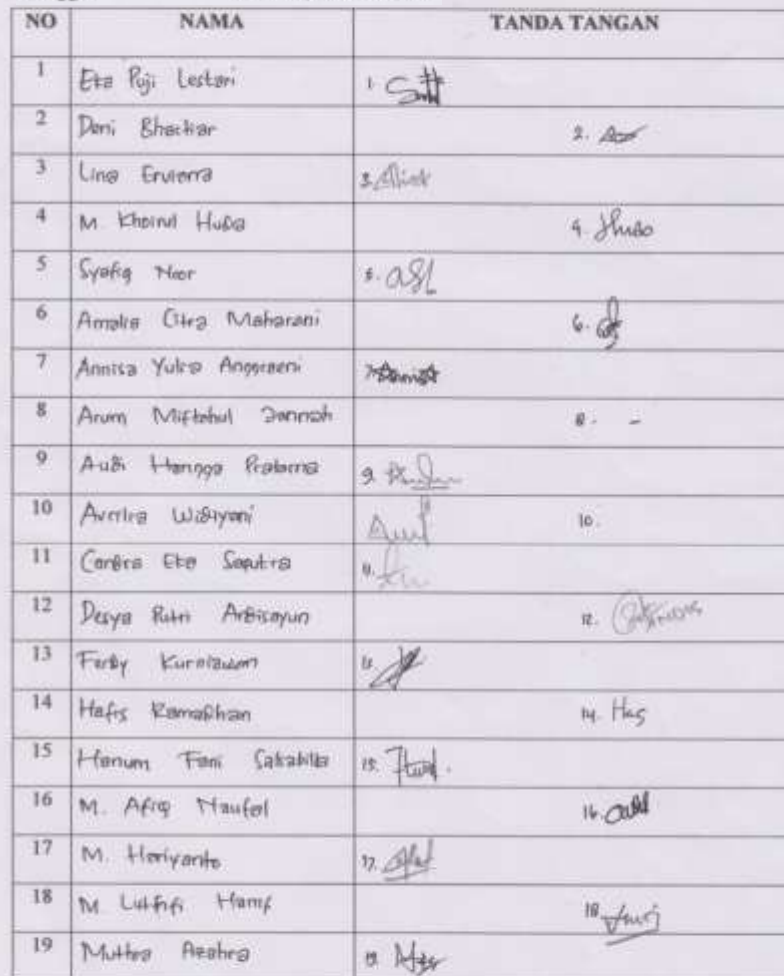 NO NAMA TANDA TANGAN
1 Eka Puji Lestari 1.
2 Deni Bhactiar 2.
3 Lina Ervierra 3.
4 M. Khoirul Huda 4. Huda
5 Syafiq Noor 5.
6 Amalia Citra Maharani 6.
7 Annisa Yulia Anggraeni 7.
8 Arum Miftahul Jannah 8. -
9 Audi Hangga Pratama 9.
10 Averlia Widiyani 10.
11 Candra Eka Saputra 11.
12 Desya Putri Ardisayun 12.
13 Ferby Kurniawan
14 Hafis Ramadhan 14. Has
15 Hanum Fani Salsabilla 15.
16 M. Afiq Naufal 16.
17 M. Hariyanto 17.
18 M. Luthfi Hanif 18.
19 Muthea Azahra 19.